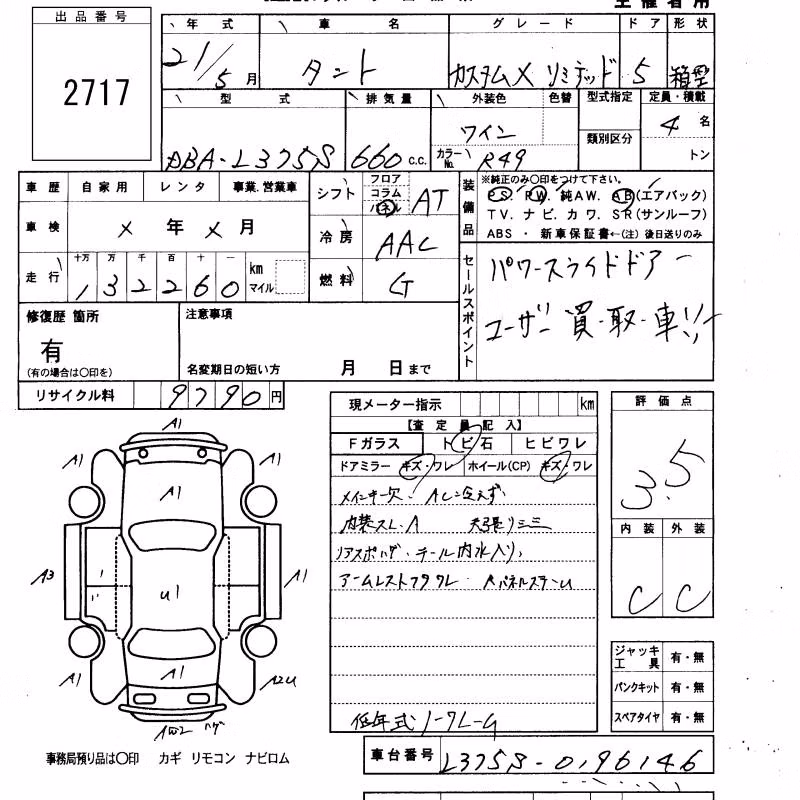 出品番号
2717
年式 車名 グレード ドア 形状
21/5月 タント カスタムX リミテッド 5 箱型
型式 排気量 外装色 色替 型式指定 定員・積載
DBA-L375S 660 c.c. ワイン 類別区分 4名
カラーNo. R49 トン
車歴 自家用 レンタ 事業.営業車
シフト フロア コラム パネル AT
装備品
※純正のみ○印をつけて下さい。
PS. PW. 純AW. AB(エアバック)
TV. ナビ. カワ. SR(サンルーフ)
ABS ・ 新車保証書←(注) 後日送りのみ
車検 × 年 × 月
冷房 AAC
走行 十万 万 千 百 十 一 km マイル
132260
燃料 G
セールスポイント
パワースライドドアー
ユーザー買・取・車!!
修復歴 箇所
有
(有の場合は○印を)
注意事項
名変期日の短い方 月 日まで
リサイクル料 9790円
現メーター指示 km
【査定員記入】
Fガラス トビ石 ヒビワレ
ドアミラー キズ・ワレ ホイール(CP) キズ・ワレ
メインキー欠 ・ ACレ冷えず
内装スレ.A 天張りシミ
リアスポハゲ・テール内水入り,
アームレストフタワレ
低年式
評価点
3.5
内装 外装
C C
ジャッキ工具 有・無
パンクキット 有・無
スペアタイヤ 有・無
A1
A1 A1
A1
A3 A1
U1
A1
A1 A2U
ハゲ
事務局預り品は○印 カギ リモコン ナビロム
車台番号 L375S-0196146